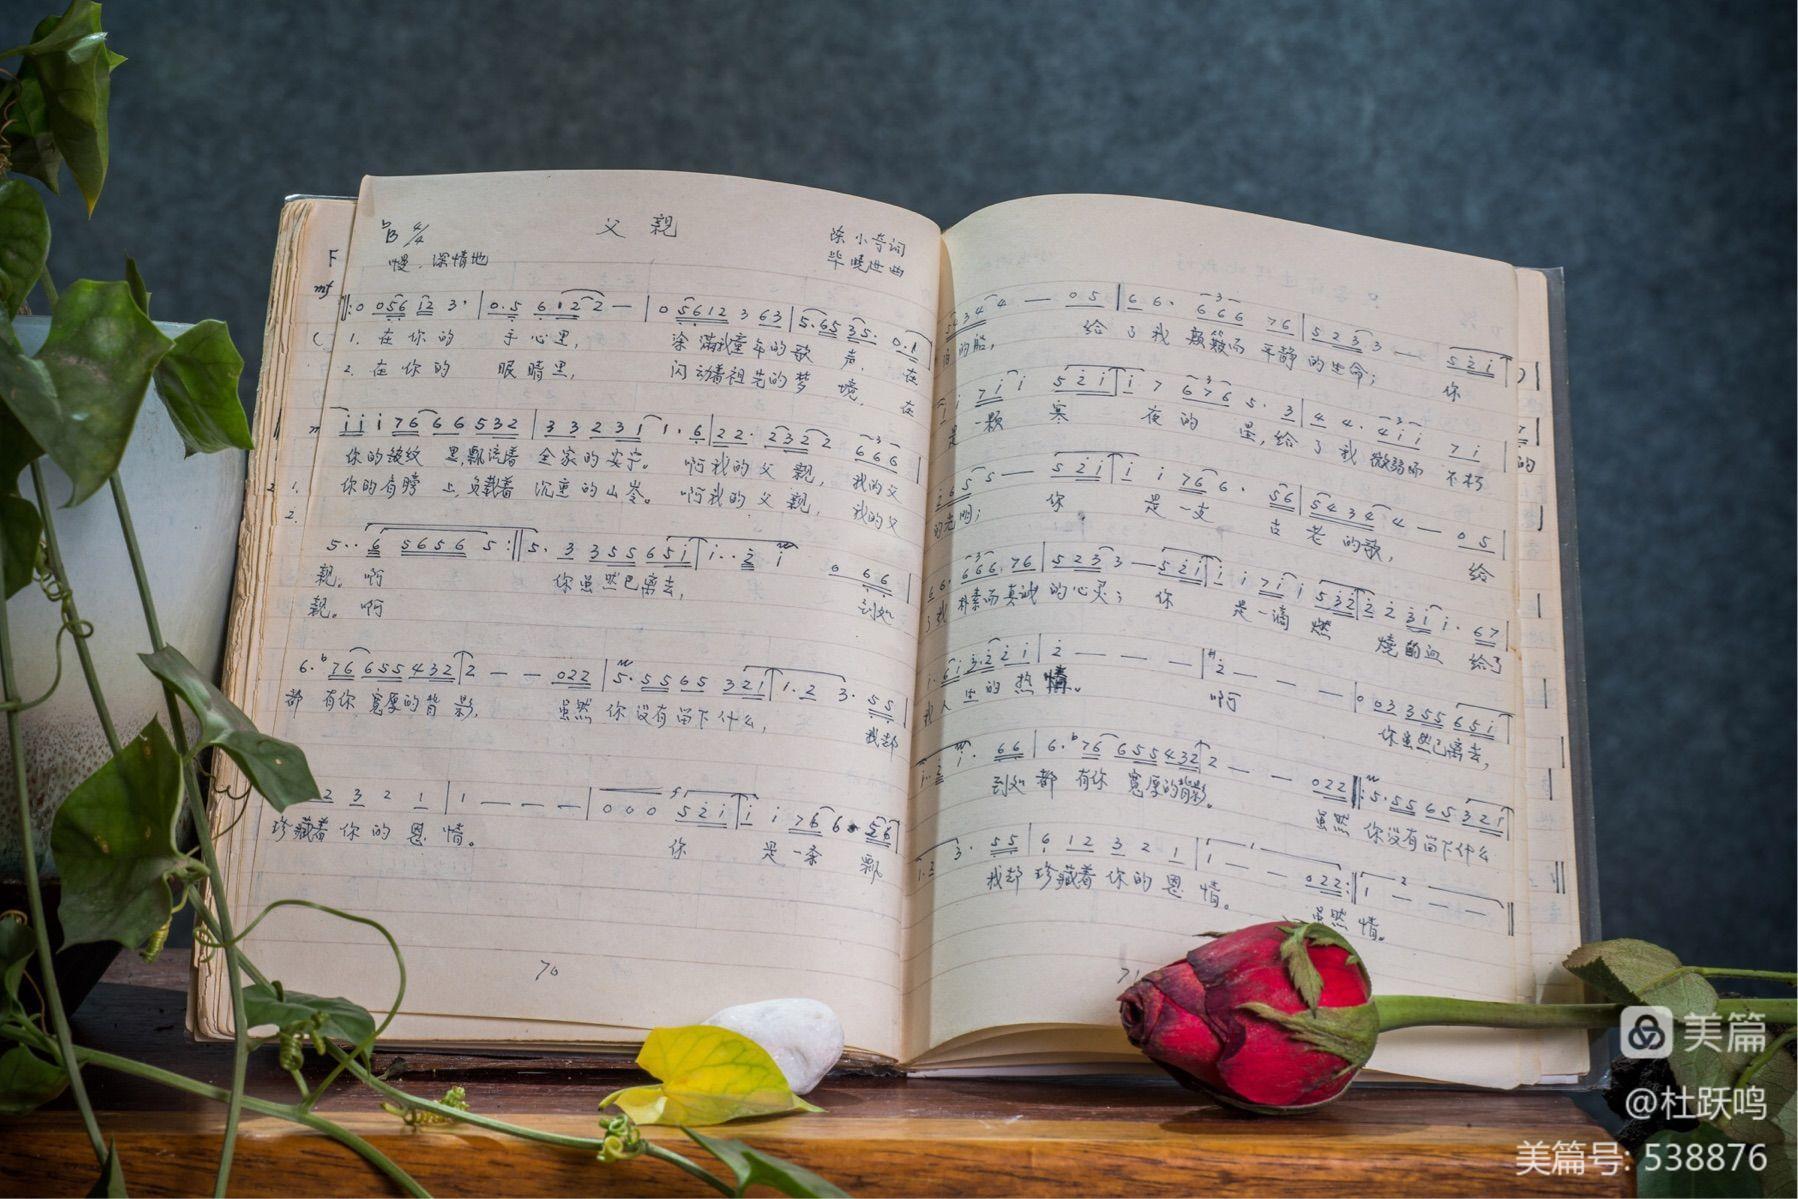 父親
♭B 4/4
陈小奇词
慢.深情地
毕晓世曲
F
mf
‖: 0 056 12 3· | 0.5 6122 — | 0 5612 3 63 | 5.65 35. 0.1
1. 在你的 手心里, 涂满我童年的歌声, 在
2. 在你的 眼睛里, 闪动着祖先的梦境, 在
i i i 76 6 6 532 | 3 3 2 3 1 1· 6 | 2 2· 2322 666 |
你的皱纹里,飘流着 全家的安宁。 啊我的父親, 我的父
1. 你的肩膀上,负载着 沉重的山峦。 啊我的父親, 我的父
2.
5·· 6 5656 5 :‖ 5. 3 3556 51 | i·· 2 i 0 66 |
親。啊 你虽然已离去, 到处
親。啊
6·♭76 655432 2 — — 022 | 5·55 65 321 | 1·2 3· 55 |
都有你宽厚的背影, 虽然你没有留下什么, 我却
2 3 2 1 | 1 — — — | 0 0 0 52i | i i 76 6 56 |
珍藏着你的恩情。 你 是一条 飘
70
5434 4 — 05 | 6 6· 666 76 | 5233 — 52i
泊的船, 给了我颠簸而平静的生命; 你
i 7i i 52i | i 7 676 5· 3 | 4 4· 4ii 7i |
是一颗寒 夜的星,给了我微弱而不朽
的
2655 — 52i | i i 76 6· 56 | 5434 4 — 05 |
的光明; 你 是一支 古老的歌, 给
6 6· 666 76 | 5233 — 52i | i i 7i i 532 | 2 2 3i i· 67
了我朴素而真诚的心灵; 你 是一滴燃 烧的血 给了
i· 6i 3·2 2i | 2 — — — | 2 — — — | 0 03 355 65i
我人生的热情。 啊 你虽然已离去,
i·· 2 i· 66 | 6·♭76 655432 2 — — 022 ‖: 5·55 65 321
到处都有你宽厚的背影。 虽然你没有留下什么
1·2 3· 55 | 6 12 3 2 1 | 1 — — 022 :‖ 1 — — — ‖
我却珍藏着你的恩情。 虽然 情。
71
美篇
@杜跃鸣
美篇号: 538876